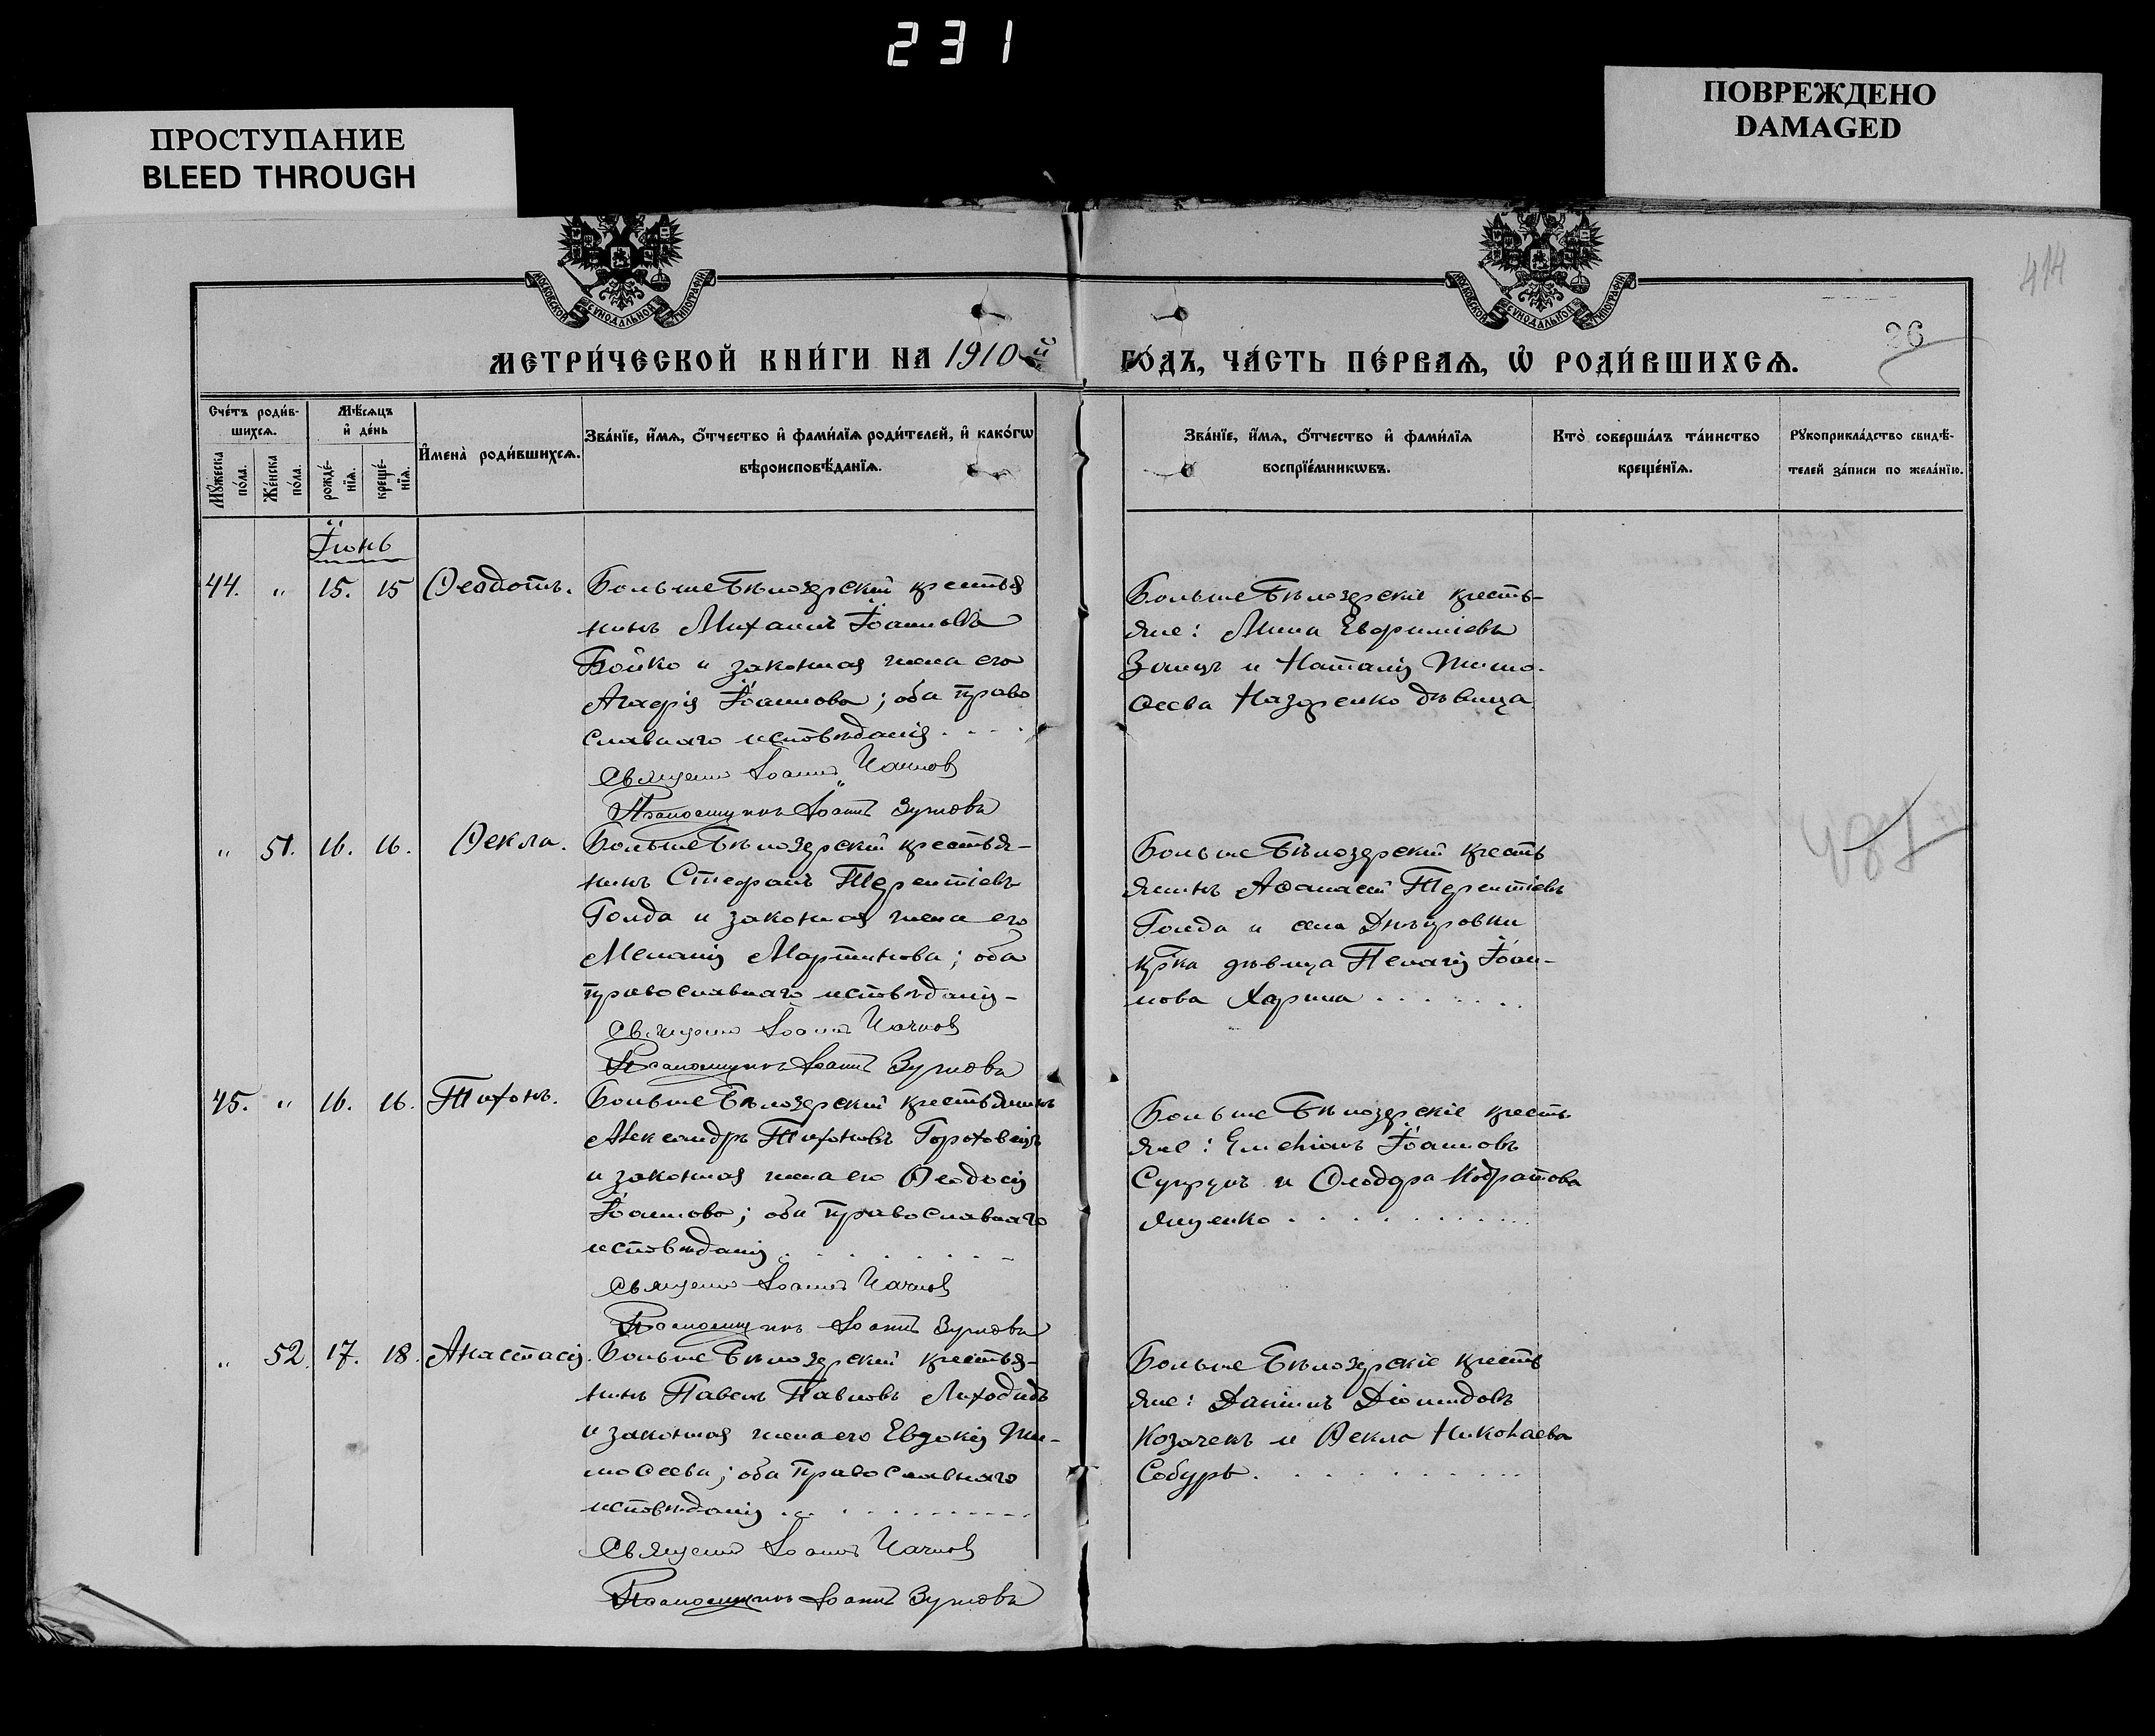 231
ПРОСТУПАНИЕ
BLEED THROUGH
ПОВРЕЖДЕНО
DAMAGED
414
МОСКОВСКОЙ СѴНОДАЛЬНОЙ ТИПОГРАФІИ
МОСКОВСКОЙ СѴНОДАЛЬНОЙ ТИПОГРАФІИ
26
МЕТРИ́ЧЕСКОЙ КНИ́ГИ НА 1910й ГО́ДЪ, ЧА́СТЬ ПЕ́РВАѦ, Ѡ҆ РОДИ́ВШИХСѦ.
Сче́тъ роди́в-
шихсѧ.
Мѣ́сѧцъ
и҆ де́нь
Мꙋ́жеска по́ла.
Же́нска по́ла.
рожде́-нїѧ.
креще́-нїѧ.
И҆мена̀ роди́вшихсѧ.
Зва́нїе, и҆́мѧ, ѻ҆́тчество и҆ фами́лїѧ роди́телей, и҆ како́гѡ
вѣроисповѣ́данїѧ.
Зва́нїе, и҆́мѧ, ѻ҆́тчество и҆ фами́лїѧ
воспрїе́мникѡвъ.
Кто̀ соверша́лъ та́инство
креще́нїѧ.
Рꙋкоприкла́дство свидѣ́-
телей за́писи по жела́нїю.
Іюнь
44. " 15. 15 Ѳеодотъ.
Больше Бѣлозерскій крестья
нинъ Михаилъ Іоанновъ
Бойко и законная жена его
Агафія Іоаннова; оба право
славнаго исповѣданія
Священн Іоаннъ
Псаломщикъ Іоаннъ
Больше Бѣлозерскіе кресть-
яне: Мина Евфиміевъ
Заицъ и Наталія Тимо-
ѳеева Назаренко дѣвица
" 51. 16. 16. Ѳекла.
Больше Бѣлозерскій крестья-
нинъ Стефанъ Терентіевъ
Голда и законная жена его
Меланія Мартинова; оба
православнаго исповѣданія-
Священн Іоаннъ
Псаломщикъ Іоаннъ
Больше Бѣлозерскій кресть
янинъ Аѳанасій Терентіевъ
Голда и села Днѣпровки
кр-ка дѣвица Пелагія Іоан-
нова Харина
487
45. " 16. 16. Тихонъ.
Больше Бѣлозерскій крестьянинъ
Александръ Тихоновъ
и законная жена его Ѳеодосія
Іоаннова; оба православнаго
исповѣданія
Священн Іоаннъ
Псаломщикъ Іоаннъ
Больше Бѣлозерскіе кресть
яне: Емеліанъ Іоанновъ
Супрунъ и Ѳеодора Кодратова
Яценко
" 52. 17. 18. Анастасія.
Больше Бѣлозерскій крестья-
нинъ Павелъ Павловъ Лиходидъ
и законная жена его Евдокія Ти-
моѳеева; оба православнаго
исповѣданія
Священн Іоаннъ
Псаломщикъ Іоаннъ
Больше Бѣлозерскіе кресть
яне: Даніилъ Діомидовъ
Козачекъ и Ѳекла Николаева
Собурь